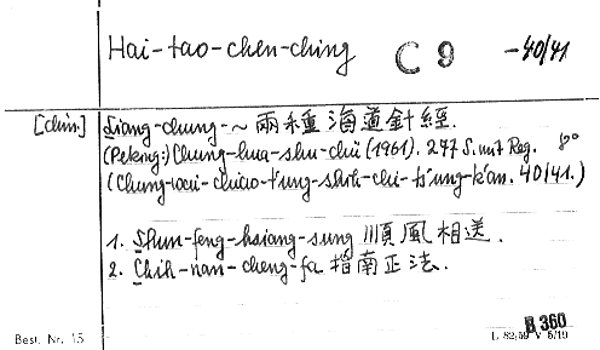 Hai-tao-chen-ching C 9 -40/41
[chin.] Liang-chung-~ 兩種海道針經.
(Peking:) Chung-hua-shu-chü (1961). 247 S. mit Reg. 8°
(Chung-wai-chiao-t'ung-shih-chi-ts'ung-k'an. 40/41.)
1. Shun-feng-hsiang-sung 順風相送.
2. Chih-nan-cheng-fa 指南正法.
B 360
Best. Nr. 15